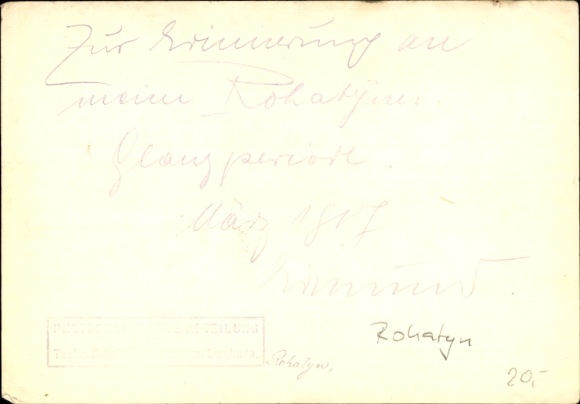 Zur Erinnerung an
meine Rohatyner
Glanzperiode.
März 1917
Edmund.
ABTEILUNG
Rohatyn
Rohatyn,
20,-